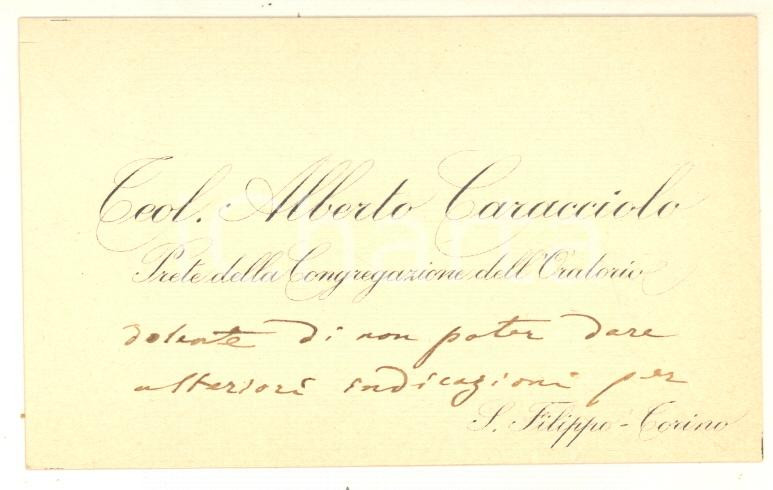 Teol. Alberto Caracciolo
Prete della Congregazione dell'Oratorio
dolente di non poter dare
ulteriori indicazioni per
S. Filippo - Torino